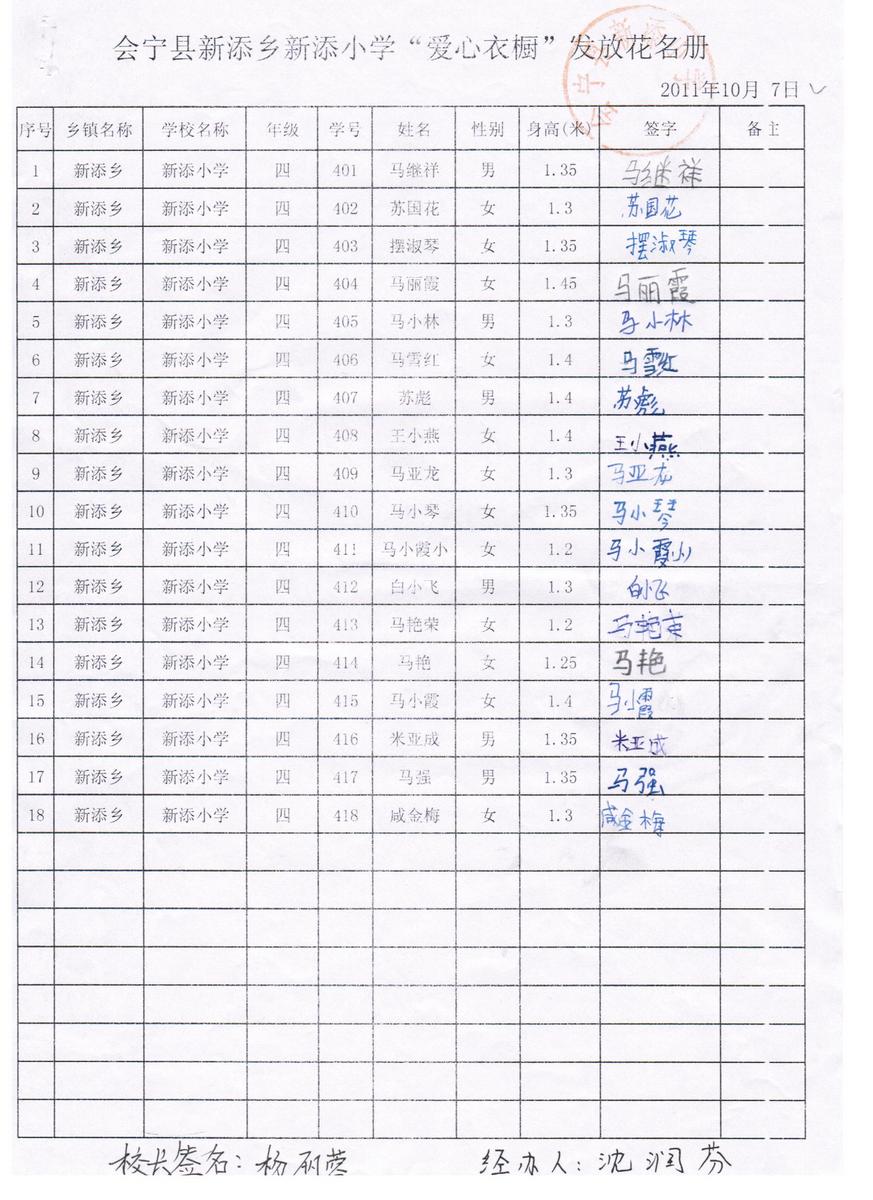 会宁县新添乡新添小学“爱心衣橱”发放花名册
2011年10月 7日
序号 乡镇名称 学校名称 年级 学号 姓名 性别 身高(米) 签字 备注
1 新添乡 新添小学 四 401 马继祥 男 1.35 马继祥
2 新添乡 新添小学 四 402 苏国花 女 1.3 苏国花
3 新添乡 新添小学 四 403 摆淑琴 女 1.35 摆淑琴
4 新添乡 新添小学 四 404 马丽霞 女 1.45 马丽霞
5 新添乡 新添小学 四 405 马小林 男 1.3 马小林
6 新添乡 新添小学 四 406 马雪红 女 1.4 马雪红
7 新添乡 新添小学 四 407 苏彪 男 1.4 苏彪
8 新添乡 新添小学 四 408 王小燕 女 1.4 王小燕
9 新添乡 新添小学 四 409 马亚龙 女 1.3 马亚龙
10 新添乡 新添小学 四 410 马小琴 女 1.35 马小琴
11 新添乡 新添小学 四 411 马小霞小 女 1.2 马小霞小
12 新添乡 新添小学 四 412 白小飞 男 1.3 白小飞
13 新添乡 新添小学 四 413 马艳荣 女 1.2 马艳荣
14 新添乡 新添小学 四 414 马艳 女 1.25 马艳
15 新添乡 新添小学 四 415 马小霞 女 1.4 马小霞
16 新添乡 新添小学 四 416 米亚成 男 1.35 米亚成
17 新添乡 新添小学 四 417 马强 男 1.35 马强
18 新添乡 新添小学 四 418 咸金梅 女 1.3 咸金梅
校长签名: 经办人: 沈润芬